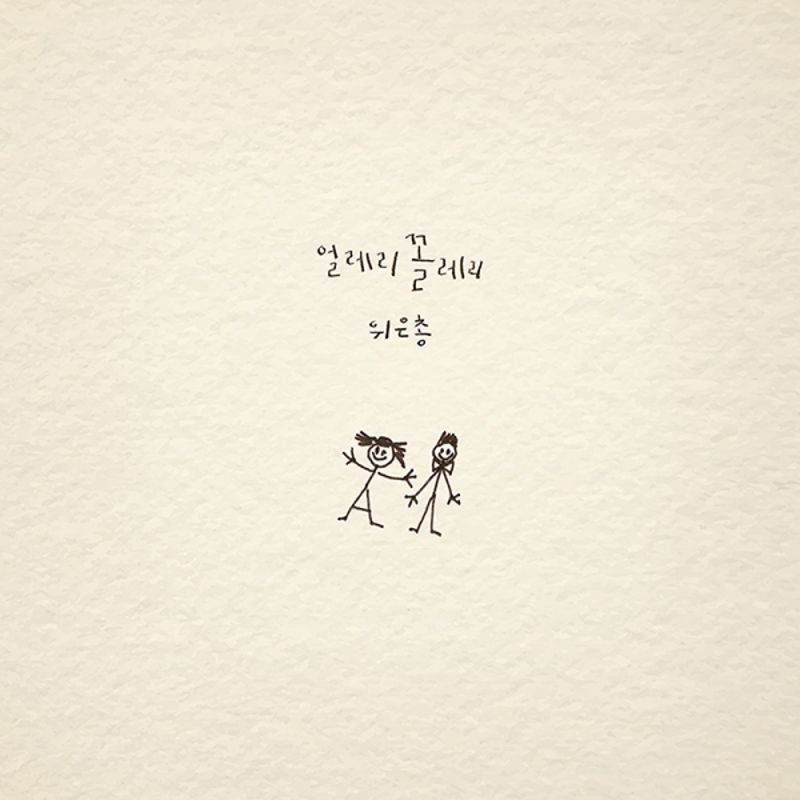 얼레리꼴레리
위은총